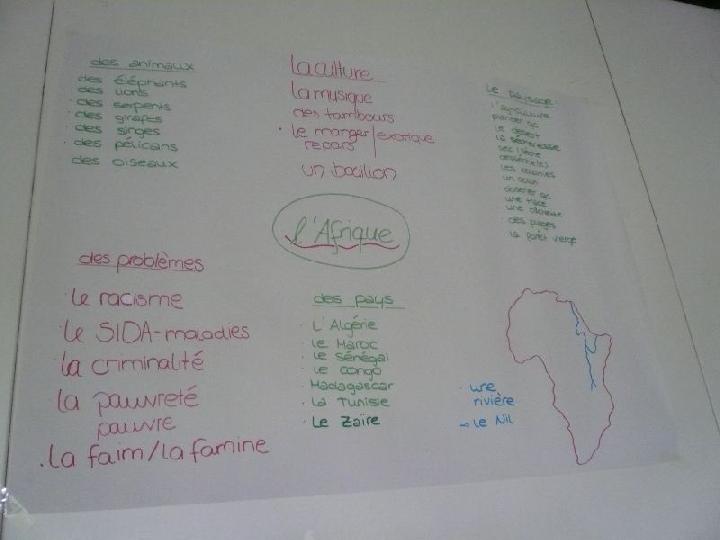 des animaux
des éléphants
des lions
des serpents
des girafes
des singes
des pélicans
des oiseaux
la culture
la musique
des tambours
le manger/exotique
repas
un
le paysage
l'agriculture
le désert
la sécheresse
les colonies
une
des
la forêt vierge
l'Afrique
des problèmes
le racisme
le SIDA-maladies
la criminalité
la pauvreté
pauvre
la faim/la famine
des pays
L'Algérie
le Maroc
le Sénégal
le Congo
Madagascar
la Tunisie
le Zaïre
une
rivière
→ le Nil